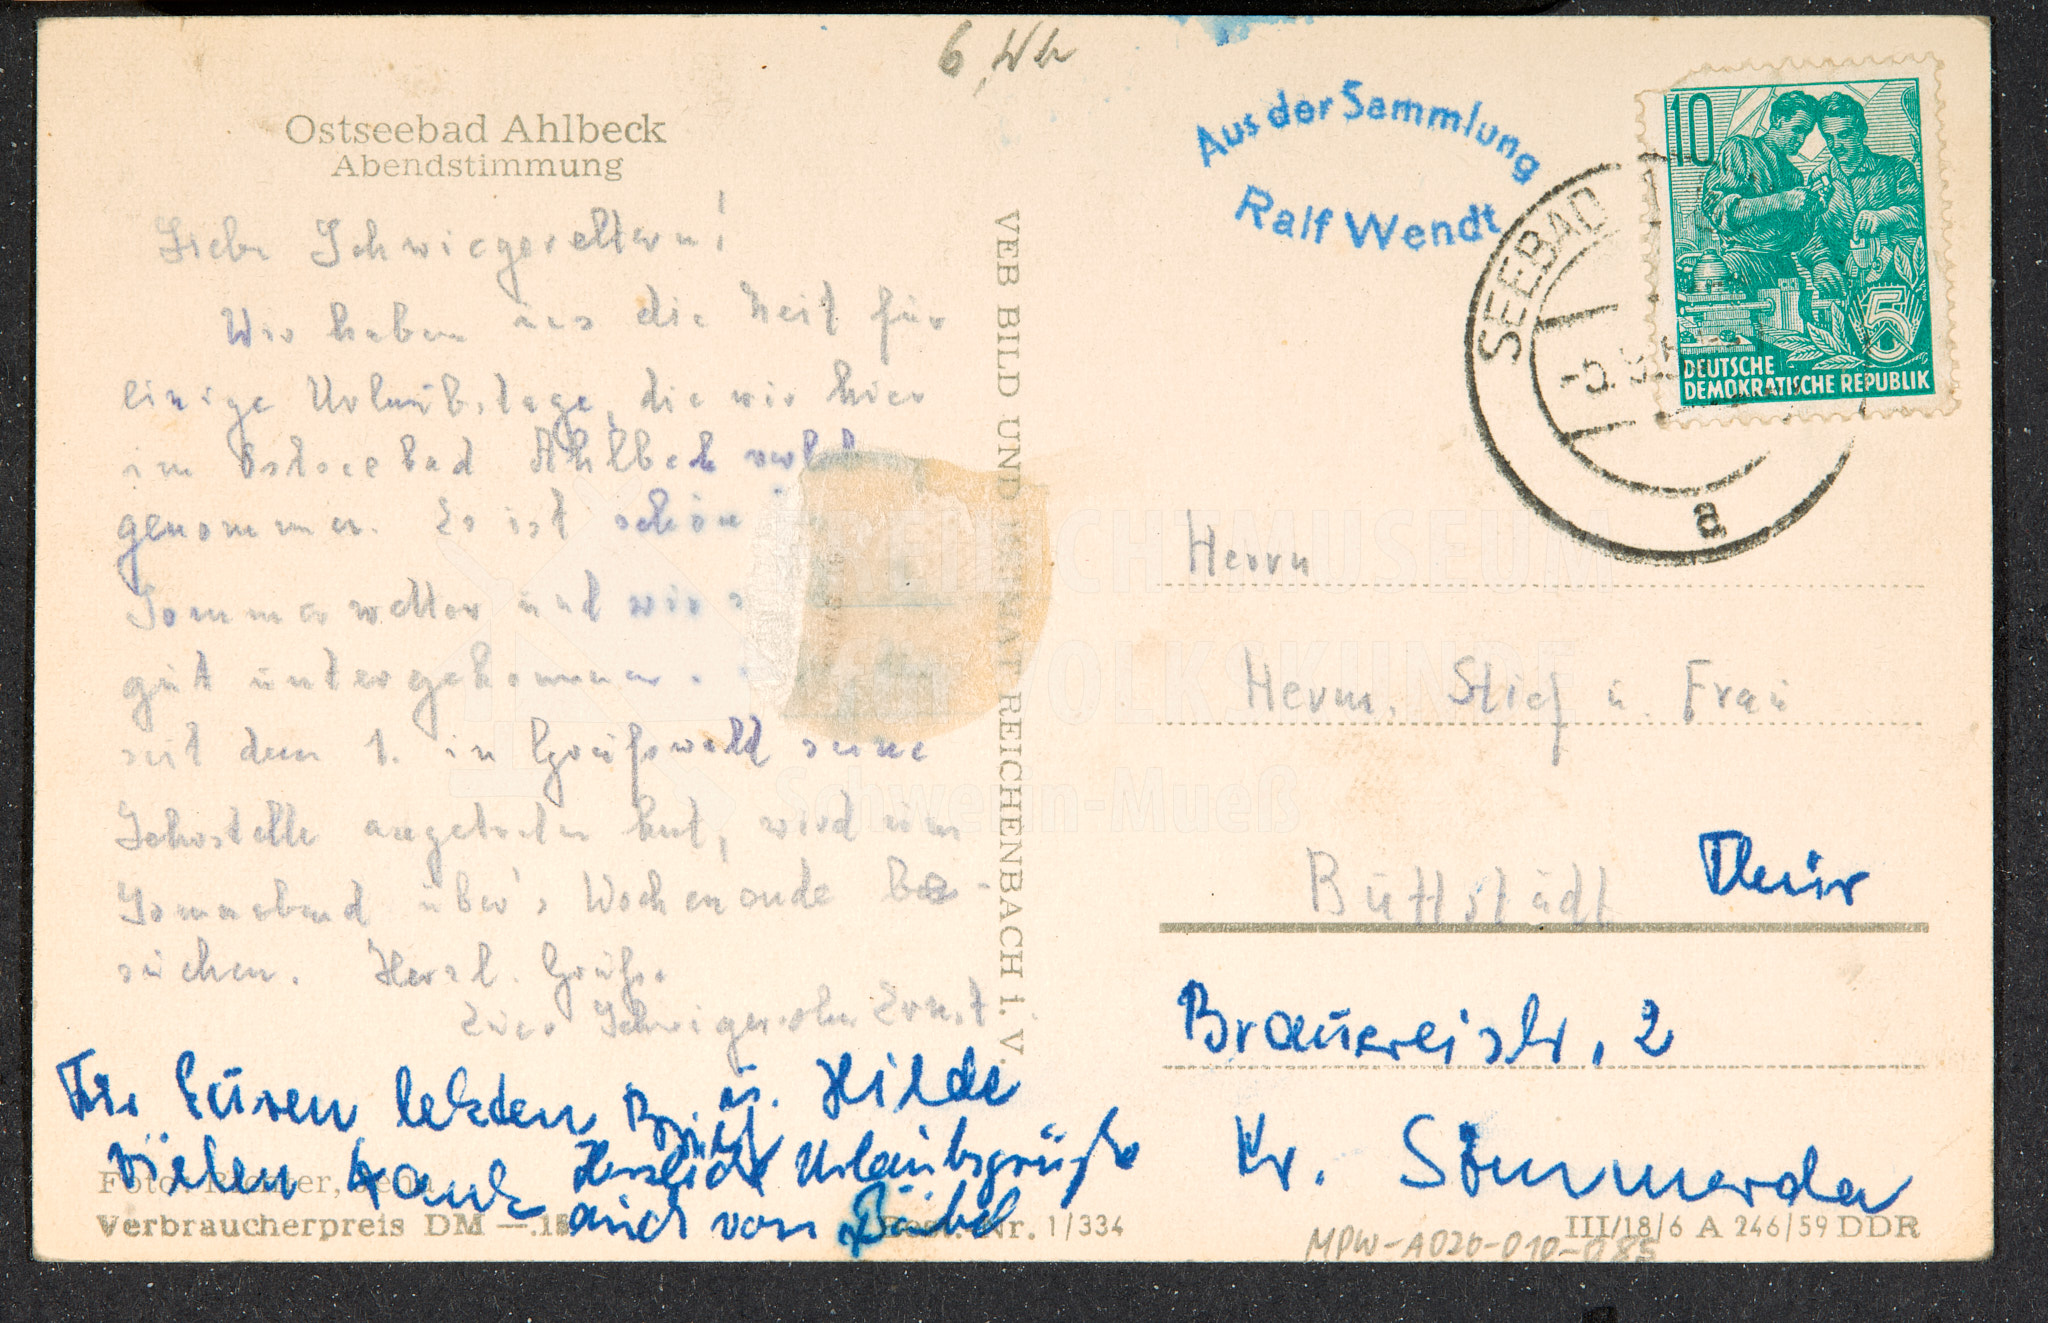 6,
Aus der Sammlung
Ralf Wendt
Ostseebad Ahlbeck
Abendstimmung
10
DEUTSCHE
DEMOKRATISCHE REPUBLIK
5
SEEBAD
a
Liebe Schwiegereltern!
Wir haben uns die Zeit für
einige Urlaubstage, die wir hier
im Ostseebad Ahlbeck
genommen. Es ist schön
Sommerwetter und wir
gut untergekommen.
seit dem 1. in Greifswald seine
Lehrstelle angetreten hat, wird uns
Sonnabend über's Wochenende be-
suchen. Herzl. Grüße
Euer Schwiegersohn Ernst
Für Euren letzten Brief u. Hilde
vielen Dank Herzliche Urlaubsgrüße
auch von Bärbel
Foto: Richter, Jena
Verbraucherpreis DM —.15
Best.-Nr. 1/334
VEB BILD UND HEIMAT REICHENBACH I. V.
Herrn
Herm. Stief u. Frau
Buttstädt Thür
Brauereistr. 2
Kr. Sömmerda
III/18/6 A 246/59 DDR
MPW-A020-010-085
FREILICHTMUSEUM
FÜR VOLKSKUNDE
Schwerin-Mueß